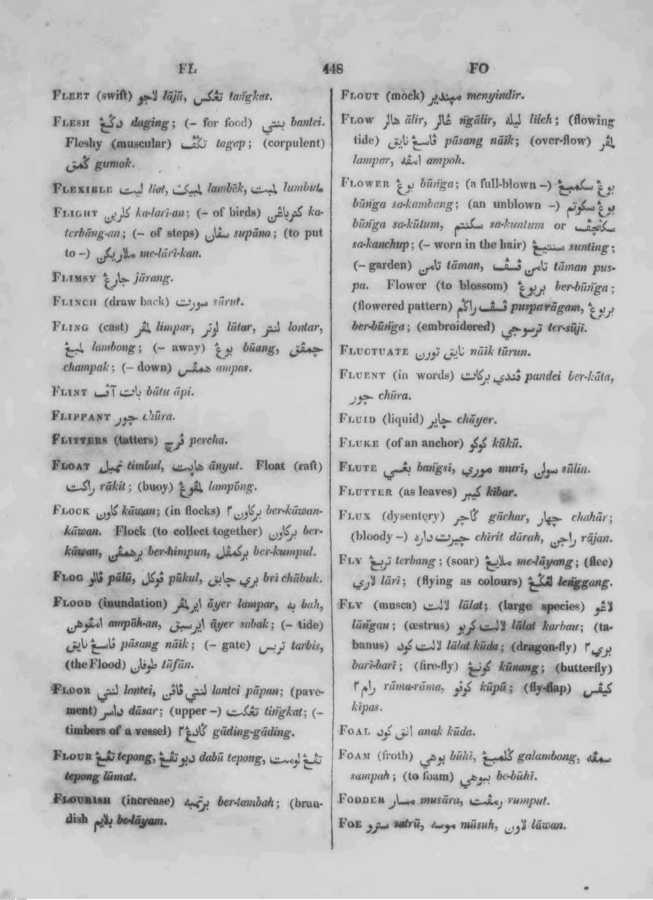 FL 448 FO
FLEET (swift) لاجو lājū, تڠكس tang̃kas.
FLESH داڬيڠ daging; (– for food) بنتي bantei.
Fleshy (muscular) تڬف tagap; (corpulent)
ڬمق gumok.
FLEXIBLE ليت liat, لمبيك lambēk, لمبت lumbut.
FLIGHT كلارين ka-lari-an; (– of birds) كتربڠن ka-
terbāng-an; (– of steps) سڤان supāna; (to put
to –) ملاريكن me-lāri-kan.
FLIMSY جارڠ jārang.
FLINCH (draw back) سورت sūrut.
FLING (cast) لمڤر limpar, لوتر lūtar, لنتر lontar,
لمبڠ lambong; (– away) بوڠ būang, چمڤق
champak; (– down) همڤس ampas.
FLINT باتو اڤي bātu āpi.
FLIPPANT چور chūra.
FLITTERS (tatters) ڤرچ percha.
FLOAT تمبل timbul, هاپت ānyut. Float (raft)
راكت rākit; (buoy) لمڤوڠ lampūng.
FLOCK كاون kāwan; (in flocks) بركاون٢ ber-kāwan-
kāwan. Flock (to collect together) بركاون ber-
kāwan, برهمڤن ber-himpun, بركمڤل ber-kumpul.
FLOG ڤالو pālū, ڤوكل pūkul, بري چابق bri chābuk.
FLOOD (inundation) اير لمڤر āyer lampar, به bah,
امڤوهن ampūh-an, اير سبق āyer sabak; (– tide)
ڤاسڠ نايق pāsang nāik; (– gate) تربس tarbis,
(the Flood) طوفان tūfān.
FLOOR لنتي lantei, لنتي ڤاڤن lantei pāpan; (pave-
ment) داسر dāsar; (upper –) تڠكت ting̃kat; (–
timbers of a vessel) ڬادڠ٢ gāding-gāding.
FLOUR تڤڠ tepong, دبو تڤڠ dabū tepong, تڤڠ لومت
tepong lūmat.
FLOURISH (increase) برتمبه ber-tambah; (bran-
dish بلايم be-lāyam.
FLOUT (mock) مڽيندير menyindir.
FLOW هالر ālir, ڠالر ng̃ālir, ليله lileh; (flowing
tide) ڤاسڠ نايق pāsang nāik; (over-flow) لمڤر
lampar, امڤه ampoh.
FLOWER بوڠ būng̃a; (a full-blown –) بوڠ سكمبڠ
būng̃a sa-kambang; (an unblown –) بوڠ سكوتم
būng̃a sa-kūtum, سكنتم sa-kuntum or سكنچڤ
sa-kanchup; (– worn in the hair) سنتيڠ sunting;
(– garden) تامن tāman, تامن ڤسڤ tāman pus-
pa. Flower (to blossom) بربوڠ ber-būng̃a;
(flowered pattern) ڤرڤراڬم purparāgam, بربوڠ
ber-būng̃a; (embroidered) ترسوجي ter-sūji.
FLUCTUATE نايق تورن nāik tūrun.
FLUENT (in words) ڤندي بركات pandei ber-kāta,
چور chūra.
FLUID (liquid) چاير chāyer.
FLUKE (of an anchor) كوكو kūkū.
FLUTE بڠسي bang̃si, موري muri, سولن sūlin.
FLUTTER (as leaves) كيبر kibar.
FLUX (dysentery) ڬاچر gāchar, چهار chahār;
(bloody –) چيرت داره chirit dārah, راجن rājan.
FLY تربڠ terbang; (soar) ملايڠ me-lāyang; (flee)
لاري lāri; (flying as colours) لڠڬڠ lenggang.
FLY (musca) لالت lālat; (large species) لاڠو
lāng̃au; (œstrus) لالت كربو lālat karbau; (ta-
banus) لالت كود lālat kūda; (dragon-fly) بري٢
bari-bari; (fire-fly) كونڠ kūnang; (butterfly)
رام٢ rāma-rāma, كوڤو kūpū; (fly-flap) كيڤس
kipas.
FOAL انق كود anak kūda.
FOAM (froth) بوهي būhi, ڬلمبڠ galambong, سمڤه
sampah; (to foam) ببوهي be-būhi.
FODDER مسار musāra, رمڤت rumput.
FOE سترو satrū, موسه mūsuh, لاون lāwan.